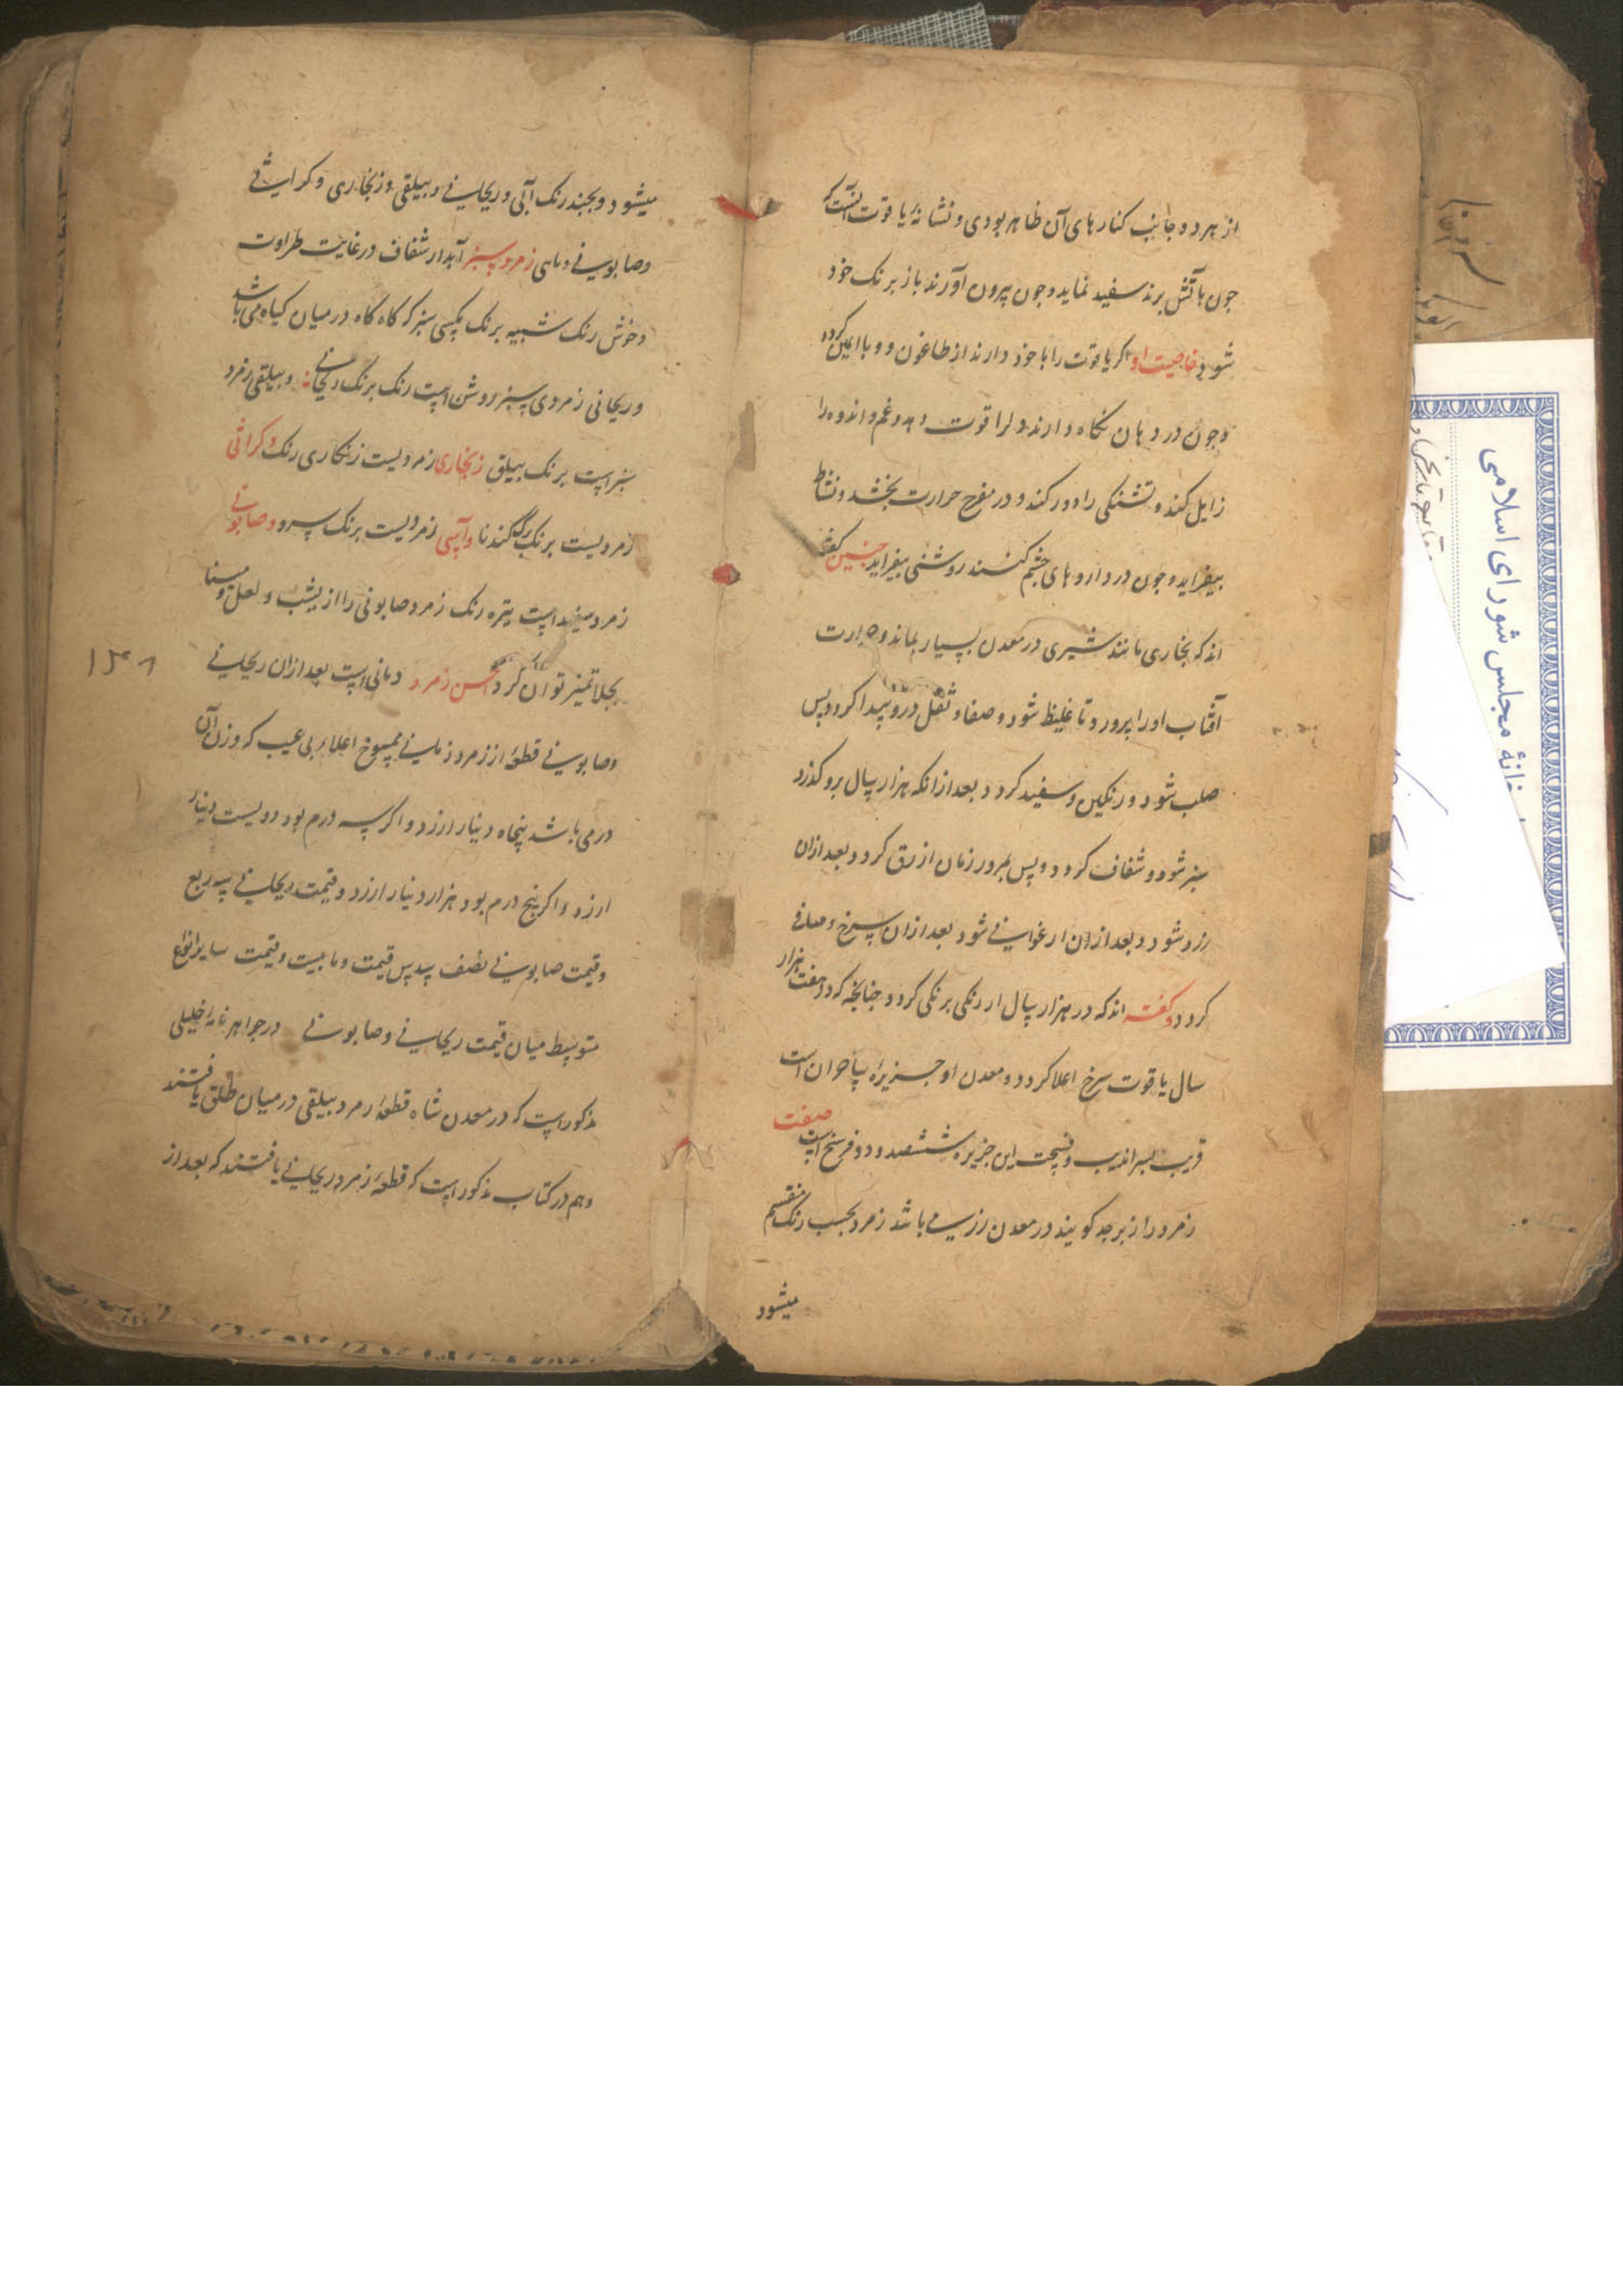 از هر دو جانب کنارهای آن ظاهر بودی و نشانهٔ یاقوت آنست که
چون بآتش برند سفید نماید و چون بیرون آورند باز برنک خود
شود خاصیت او اکر یاقوت را با خود دارند از طاعون و وبا ایمن کردد
و چون در دهان نکاه دارند دلرا قوت دهد و غم و اندوه را
زایل کند و تشنکی را دور کند و در مفرح حرارت بخشد و نشاط
بیفزاید و چون در داروهای چشم کنند روشنی بیفزاید چنین کفته
اند که بخاری مانند شیری در معدن بسیار بماند و حرارت
آفتاب اورا پرورد تا غلیظ شود و صفا و ثقل درو پیدا کردد پس
صلب شود و رنکین و سفید کردد بعد از انکه هزار سال برو کذرد
سبز شود و شفاف کردد و پس بمرور زمان ازرق کردد و بعد ازان
زرد شود و بعد ازان ارغوانی شود بعد ازان سرخ و صافی
کردد و کفته اند که در هزار سال از رنکی برنکی کردد چنانچه کردد هفت هزار
سال یاقوت سرخ اعلا کردد و معدن او جزیرهٔ است
قریب بسراندیب و فسحت این جزیره ششصد و دو فرسخ است صفت
زمرد را زبرجد کویند در معدن زر می باشد زمرد بحسب رنک منقسم
میشود
میشود و بچند رنک آبی و ریحانی و سلقی و زنجاری و کراثی
و صابونی زمرد سبز آبدار شفاف در غایت طراوت
و خوش رنک شبیه برنک مکسی سبز که کاه کاه در میان کیاه می باشد
و ریحانی زمردی سبز روشن است رنک برنک ریحانی و سلقی زمرد
سبز است برنک سلق زنجاری زمردیست زنکاری رنک و کراثی
زمردیست برنک برک کندنا و آسی زمردیست برنک سرو و صابونی
زمرد سفید است تیره رنک زمرد صابونی را از یشب و لعل و مینا
بجلا تمیز توان کرد احسن زمرد است بعد ازان ریحانی
و صابونی قطعهٔ از زمرد ممسوح اعلاء بی عیب که وزن آن
درمی باشد پنجاه دینار ارزد و اکر سه درم بود دویست دینار
ارزد و اکر پنج درم بود هزار دینار ارزد و قیمت ریحانی سه ربع
و قیمت صابونی نصف سدس قیمت و قیمت سایر انواع
متوسط میان قیمت ریحانی و صابونی در جواهر نامهٔ
مذکور است که در معدن شاه قطعهٔ زمرد سلقی در میان طلق یافتند
و هم در کتاب مذکور است که قطعهٔ زمرد ریحانی یافتند که بعد از
۱۳۰۸
خانهٔ مجلس شورای اسلامی